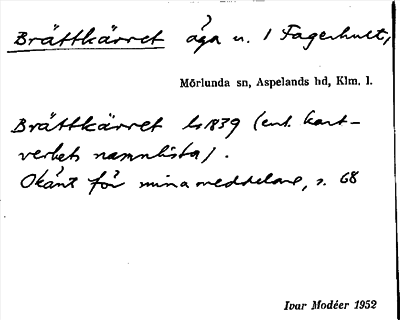 Brättkärret äga u. 1 Fagerhult,
Mörlunda sn, Aspelands hd, Klm. l.
Brättkärret ls 1839 (enl. kart-
verkets namnlista).
Okänt för mina meddelare, s. 68
Ivar Modéer 1952